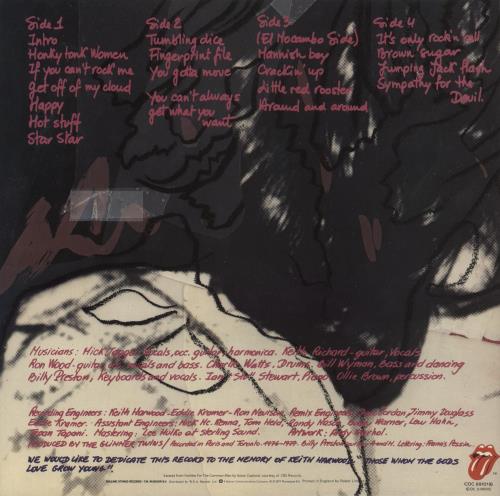 Side 1
Intro
Honky tonk Women
If you can't rock me
Get off of my cloud
Happy
Hot stuff
Star Star
Side 2
Tumbling dice
Fingerprint file
You gotta move
You can't always
get what you
want
Side 3
(El Mocambo Side)
Mannish boy
Crackin' up
Little red rooster
Around and around
Side 4
It's only rock'n roll
Brown sugar
Jumping Jack flash
Sympathy for the
Devil.
Musicians: Mick Jagger-vocals, occ. guitar, harmonica. Keith Richard-guitar, vocals
Ron Wood-guitar, vocals and bass. Charlie Watts, Drums. Bill Wyman, Bass and dancing
Billy Preston, Keyboards and vocals. Ian Stewart, Piano Ollie Brown, percussion.
Recording Engineers: Keith Harwood-Eddie Kramer-Ron Nevison. Remix Engineers: Jimmy Douglass
Eddie Kramer. Assistant Engineers: Mick Mc Kenna, Tom Heid, Randy Mason, Bobby Warner, Lew Hahn,
Mastering: Lee Hulko at Sterling Sound. Artwork: Andy Warhol.
PRODUCED BY THE GLIMMER TWINS/ Recorded in Paris and Toronto. 1976-1977. Billy Preston
WE WOULD LIKE TO DEDICATE THIS RECORD TO THE MEMORY OF KEITH HARWOOD. "THOSE WHOM THE GODS
LOVE GROW YOUNG."
COC 89101